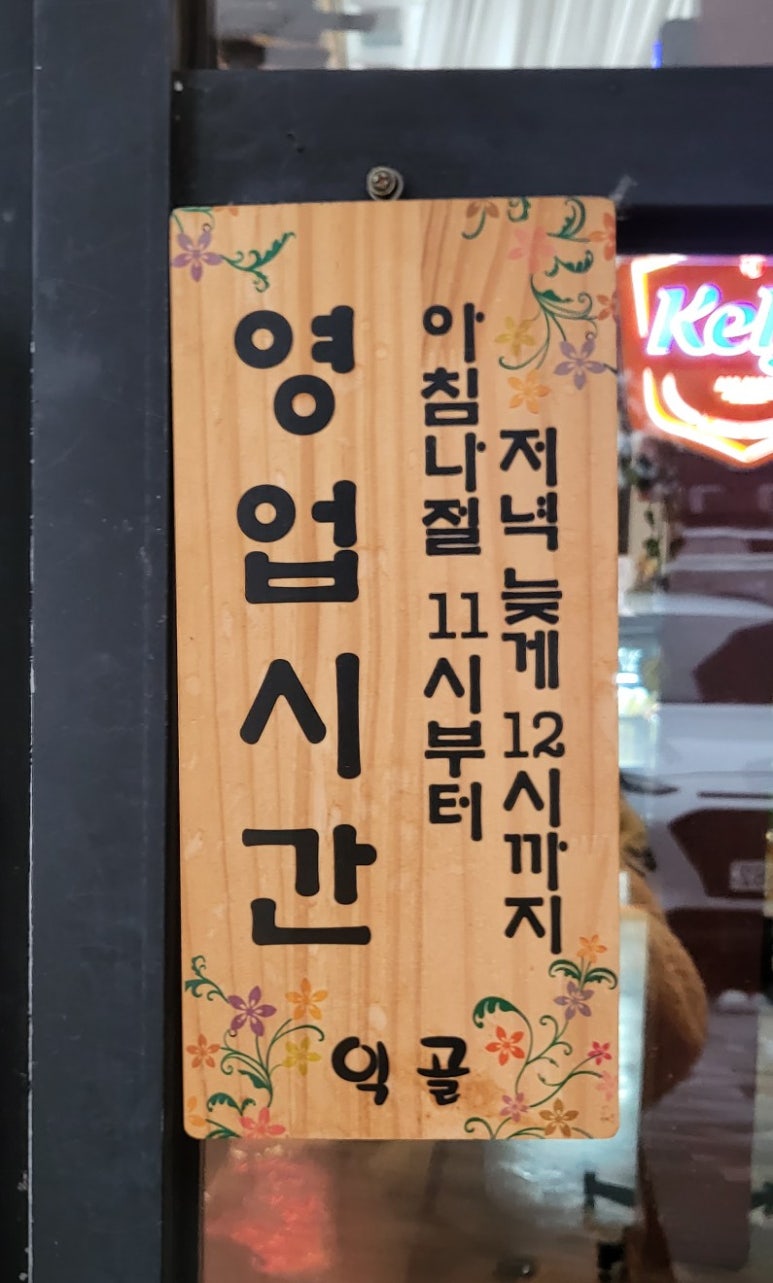 영업시간
아침나절 11시부터
저녁 늦게 12시까지
익골